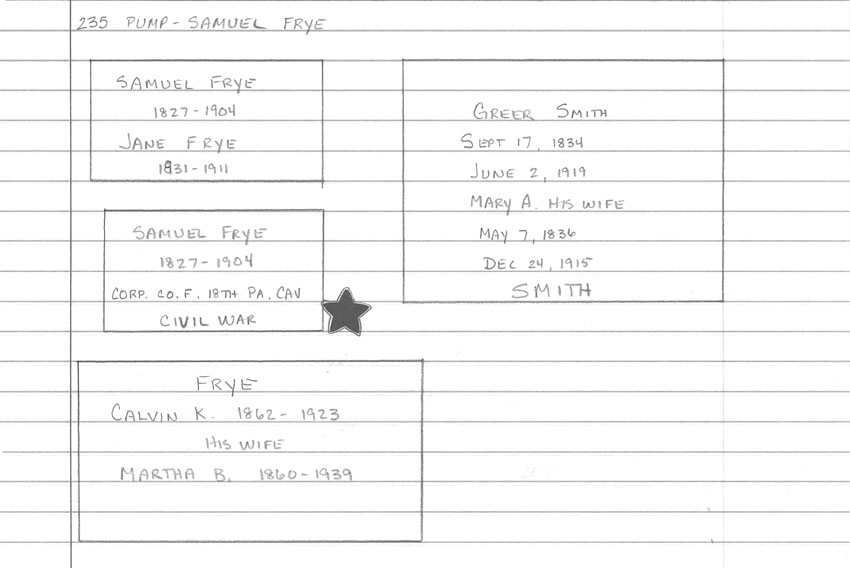 235 PUMP - SAMUEL FRYE
SAMUEL FRYE
1827 - 1904
JANE FRYE
1831 - 1911
SAMUEL FRYE
1827 - 1904
CORP. CO. F, 18TH PA. CAV
CIVIL WAR
GREER SMITH
SEPT 17, 1834
JUNE 2, 1919
MARY A. HIS WIFE
MAY 7, 1836
DEC 24, 1915
SMITH
FRYE
CALVIN K. 1862 - 1923
HIS WIFE
MARTHA B. 1860 - 1939